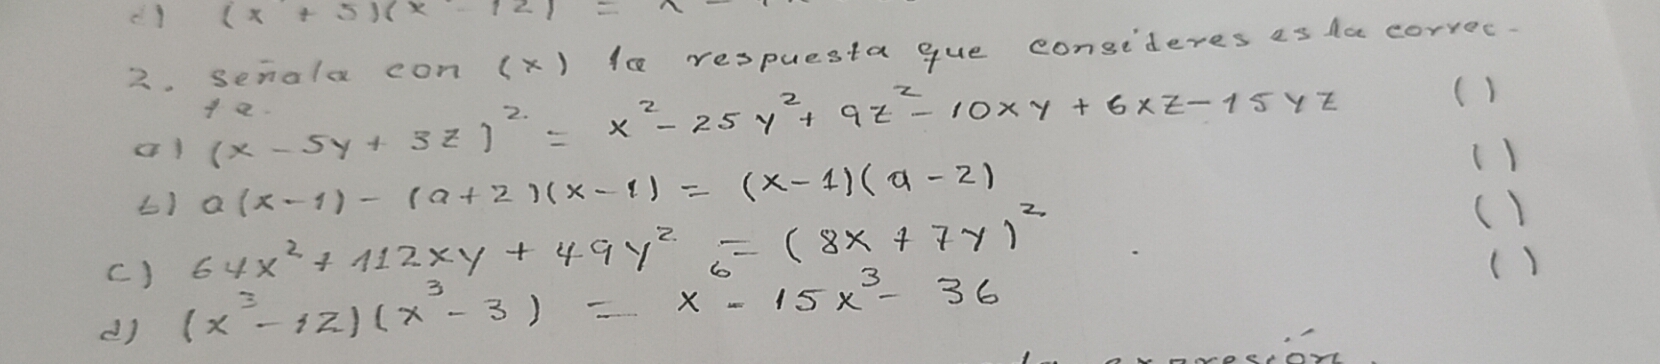 2. señala con (x) la respuesta que consideres es la correc-
ta.
a) (x - 5y + 3z)² = x² - 25y² + 9z² - 10xy + 6xz - 15yz ( )
b) a(x-1) - (a+2)(x-1) = (x-1)(a-2) ( )
c) 64x² + 112xy + 49y² = (8x + 7y)² ( )
d) (x³ - 12)(x³ - 3) = x⁶ - 15x³ - 36 ( )
expresión